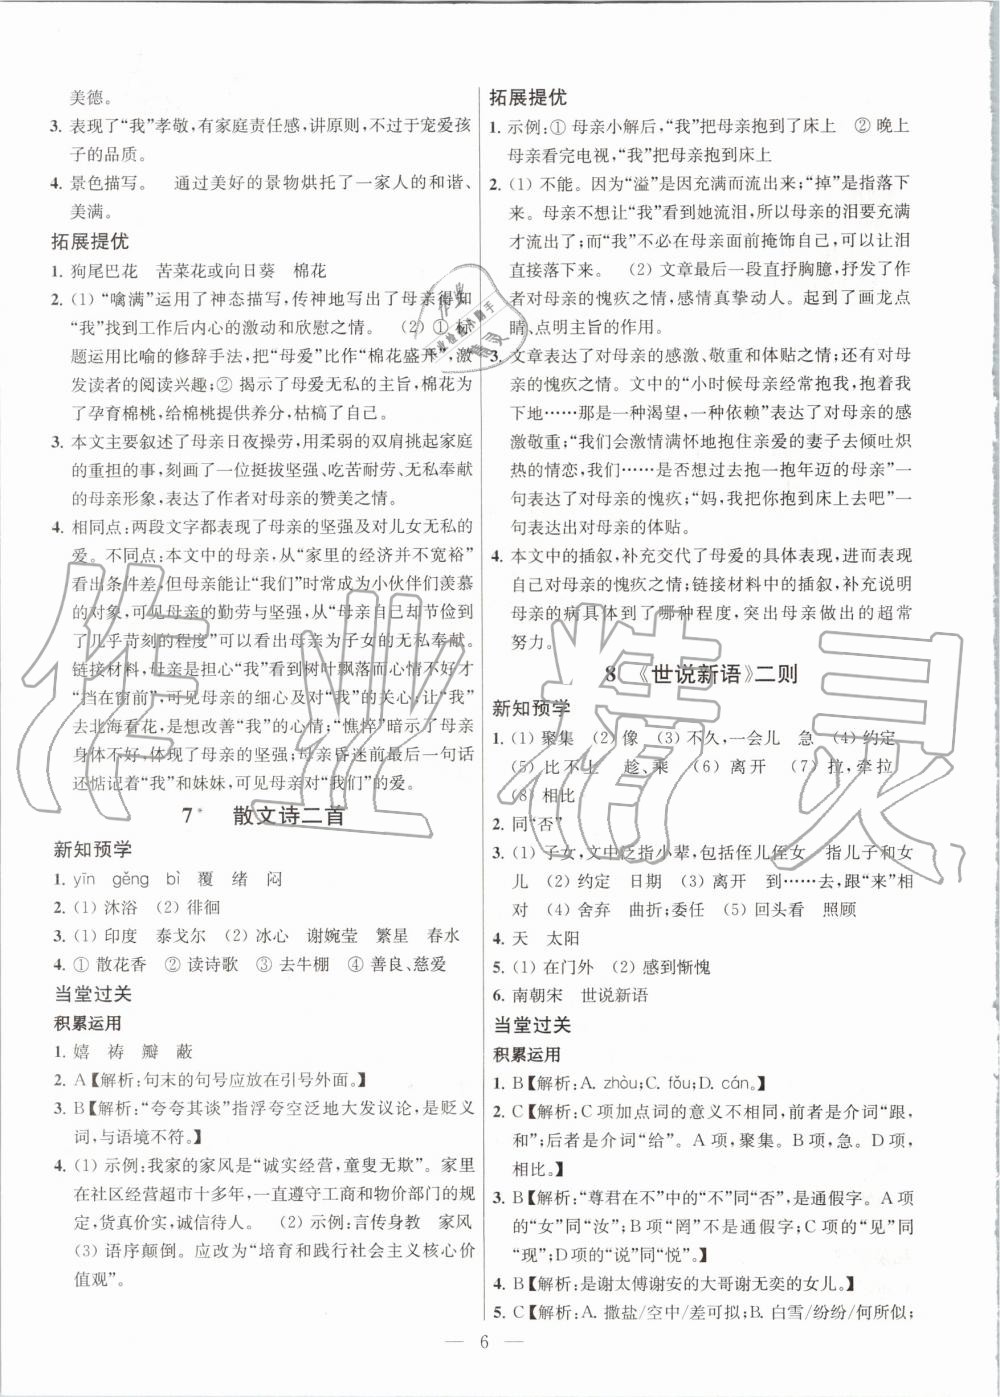 美德。
3. 表现了“我”孝敬,有家庭责任感,讲原则,不过于宠爱孩
子的品质。
4. 景色描写。 通过美好的景物烘托了一家人的和谐、
美满。
拓展提优
1. 狗尾巴花 苦菜花或向日葵 棉花
2. (1) “噙满”运用了神态描写,传神地写出了母亲得知
“我”找到工作后内心的激动和欣慰之情。 (2) ① 标
题运用比喻的修辞手法,把“母爱”比作“棉花盛开”,激
发读者的阅读兴趣;② 揭示了母爱无私的主旨,棉花为
了孕育棉桃,给棉桃提供养分,枯槁了自己。
3. 本文主要叙述了母亲日夜操劳,用柔弱的双肩挑起家庭
的重担的事,刻画了一位挺拔坚强、吃苦耐劳、无私奉献
的母亲形象,表达了作者对母亲的赞美之情。
4. 相同点:两段文字都表现了母亲的坚强及对儿女无私的
爱。不同点:本文中的母亲,从“家里的经济并不宽裕”
看出条件差,但母亲能让“我们”时常成为小伙伴们羡慕
的对象,可见母亲的勤劳与坚强,从“母亲自己却节俭到
了几乎苛刻的程度”可以看出母亲为子女的无私奉献。
链接材料,母亲是担心“我”看到树叶飘落而心情不好才
“挡在窗前”,可见母亲的细心及对“我”的关心;让“我”
去北海看花,是想改善“我”的心情;“憔悴”暗示了母亲
身体不好,体现了母亲的坚强;母亲昏迷前最后一句话
还惦记着“我”和妹妹,可见母亲对“我们”的爱。
7* 散文诗二首
新知预学
1. yīn gěng bì 覆 绪 闷
2. (1) 沐浴 (2) 徘徊
3. (1) 印度 泰戈尔 (2) 冰心 谢婉莹 繁星 春水
4. ① 散花香 ② 读诗歌 ③ 去牛棚 ④ 善良、慈爱
当堂过关
积累运用
1. 嬉 祷 瓣 蔽
2. A【解析:句末的句号应放在引号外面。】
3. B【解析:“夸夸其谈”指浮夸空泛地大发议论,是贬义
词,与语境不符。】
4. (1) 示例:我家的家风是“诚实经营,童叟无欺”。家里
在社区经营超市十多年,一直遵守工商和物价部门的规
定,货真价实,诚信待人。 (2) 示例:言传身教 家风
(3) 语序颠倒。应改为“培育和践行社会主义核心价
值观”。
拓展提优
1. 示例:① 母亲小解后,“我”把母亲抱到了床上 ② 晚上
母亲看完电视,“我”把母亲抱到床上
2. (1) 不能。因为“溢”是因充满而流出来;“掉”是落下
来。母亲不想让“我”看到她流泪,所以母亲的泪要充满
才流出了;而“我”不必在母亲面前掩饰自己,可以让泪
直接落下来。 (2) 文章最后一段直抒胸臆,抒发了作
者对母亲的愧疚之情,感情真挚动人。起到了画龙点
睛、点明主旨的作用。
3. 文章表达了对母亲的感激、敬重和体贴之情;还有对母
亲的愧疚之情。文中的“小时候母亲经常抱我,抱着我
下地……那是一种渴望,一种依赖”表达了对母亲的感
激敬重;“我们会激情满怀地抱住亲爱的妻子去倾吐炽
热的情恋,我们……是否想过去抱一抱年迈的母亲”一
句表达了对母亲的愧疚;“妈,我把你抱到床上去吧”一
句表达出对母亲的体贴。
4. 本文中的插叙,补充交代了母爱的具体表现,进而表现
自己对母亲的愧疚之情;链接材料中的插叙,补充说明
母亲的病具体到了哪种程度,突出母亲做出的超常
努力。
8 《世说新语》二则
新知预学
1. (1) 聚集 (2) 像 (3) 不久,一会儿 急 (4) 约定
(5) 比不上 趁、乘 (6) 离开 (7) 拉,牵拉
(8) 相比
2. 同“否”
3. (1) 子女,文中泛指小辈,包括侄儿侄女 指儿子和女
儿 (2) 约定 日期 (3) 离开 到……去,跟“来”相
对 (4) 舍弃 曲折;委任 (5) 回头看 照顾
4. 天 太阳
5. (1) 在门外 (2) 感到惭愧
6. 南朝宋 世说新语
当堂过关
积累运用
1. B【解析:A. zhòu;C. fǒu;D. cán。】
2. C【解析:C项加点词的意义不相同,前者是介词“跟,
和”;后者是介词“给”。A项,聚集。B项,急。D项,
相比。】
3. B【解析:“尊君在不”中的“不”同“否”,是通假字。A项
的“女”同“汝”;B项“罔”不是通假字;C项的“见”同
“现”;D项的“说”同“悦”。】
4. B【解析:是谢太傅谢安的大哥谢无奕的女儿。】
5. C【解析:A. 撒盐/空中/差可拟;B. 白雪/纷纷/何所似;
— 6 —
作业精灵